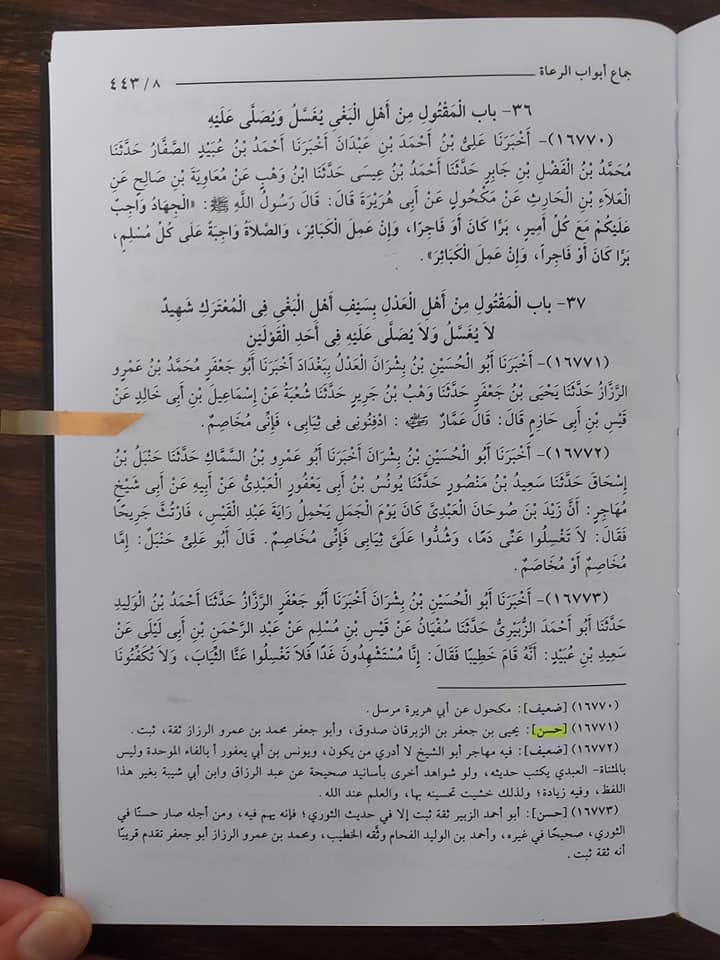 جماع أبواب الرعاة
٨ / ٤٤٣
٣٦- باب الْمَقْتُولِ مِنْ أَهْلِ الْبَغْىِ يُغَسَّلُ وَيُصَلَّى عَلَيْهِ
(١٦٧٧٠)- أَخْبَرَنَا عَلِىُّ بْنُ أَحْمَدَ بْنِ عَبْدَانَ أَخْبَرَنَا أَحْمَدُ بْنُ عُبَيْدٍ الصَّفَّارُ حَدَّثَنَا
مُحَمَّدُ بْنُ الْفَضْلِ بْنِ جَابِرٍ حَدَّثَنَا أَحْمَدُ بْنُ عِيسَى حَدَّثَنَا ابْنُ وَهْبٍ عَنْ مُعَاوِيَةَ بْنِ صَالِحٍ عَنِ
الْعَلاَءِ بْنِ الْحَارِثِ عَنْ مَكْحُولٍ عَنْ أَبِى هُرَيْرَةَ قَالَ: قَالَ رَسُولُ اللَّهِ ﷺ: «الْجِهَادُ وَاجِبٌ
عَلَيْكُمْ مَعَ كُلِّ أَمِيرٍ، بَرًّا كَانَ أَوْ فَاجِرًا، وَإِنْ عَمِلَ الْكَبَائِرَ، وَالصَّلاَةُ وَاجِبَةٌ عَلَى كُلِّ مُسْلِمٍ،
بَرًّا كَانَ أَوْ فَاجِراً، وَإِنْ عَمِلَ الْكَبَائِرَ».
٣٧- باب الْمَقْتُولِ مِنْ أَهْلِ الْعَدْلِ بِسَيْفِ أَهْلِ الْبَغْىِ فِى الْمُعْتَرَكِ شَهِيدٌ
لاَ يُغَسَّلُ وَلاَ يُصَلَّى عَلَيْهِ فِى أَحَدِ الْقَوْلَيْنِ
(١٦٧٧١)- أَخْبَرَنَا أَبُو الْحُسَيْنِ بْنُ بِشْرَانَ الْعَدْلُ بِبَغْدَادَ أَخْبَرَنَا أَبُو جَعْفَرٍ مُحَمَّدُ بْنُ عَمْرٍو
الرَّزَّازُ حَدَّثَنَا يَحْيَى بْنُ جَعْفَرٍ حَدَّثَنَا وَهْبُ بْنُ جَرِيرٍ حَدَّثَنَا شُعْبَةُ عَنْ إِسْمَاعِيلَ بْنِ أَبِى خَالِدٍ عَنْ
قَيْسِ بْنِ أَبِى حَازِمٍ قَالَ: قَالَ عَمَّارٌ رضي الله عنه : ادْفِنُونِى فِى ثِيَابِى، فَإِنِّى مُخَاصِمٌ.
(١٦٧٧٢)- أَخْبَرَنَا أَبُو الْحُسَيْنِ بْنُ بِشْرَانَ أَخْبَرَنَا أَبُو عَمْرِو بْنُ السَّمَّاكِ حَدَّثَنَا حَنْبَلُ بْنُ
إِسْحَاقَ حَدَّثَنَا سَعِيدُ بْنُ مَنْصُورٍ حَدَّثَنَا يُونُسُ بْنُ أَبِى يَعْفُورٍ الْعَبْدِىُّ عَنْ أَبِيهِ عَنْ أَبِى شَيْخٍ
مُهَاجِرٍ: أَنَّ زَيْدَ بْنَ صُوحَانَ الْعَبْدِىَّ كَانَ يَوْمَ الْجَمَلِ يَحْمِلُ رَايَةَ عَبْدِ الْقَيْسِ، فَارْتُثَّ جَرِيحًا
فَقَالَ: لاَ تَغْسِلُوا عَنِّى دَمًا، وَشُدُّوا عَلَىَّ ثِيَابِى فَإِنِّى مُخَاصِمٌ. قَالَ أَبُو عَلِىٍّ حَنْبَلٌ: إِمَّا
مُخَاصِمٌ أَوْ مُخَاصَمٌ.
(١٦٧٧٣)- أَخْبَرَنَا أَبُو الْحُسَيْنِ بْنُ بِشْرَانَ أَخْبَرَنَا أَبُو جَعْفَرٍ الرَّزَّازُ حَدَّثَنَا أَحْمَدُ بْنُ الْوَلِيدِ
حَدَّثَنَا أَبُو أَحْمَدَ الزُّبَيْرِىُّ حَدَّثَنَا سُفْيَانُ عَنْ قَيْسِ بْنِ مُسْلِمٍ عَنْ عَبْدِ الرَّحْمَنِ بْنِ أَبِى لَيْلَى عَنْ
سَعِيدِ بْنِ عُبَيْدٍ: أَنَّهُ قَامَ خَطِيبًا فَقَالَ: إِنَّا مُسْتَشْهِدُونَ غَدًا فَلاَ تَغْسِلُوا عَنَّا الثِّيَابَ، وَلاَ تُكَفِّنُونَا
(١٦٧٧٠) [ضعيف]: مكحول عن أبي هريرة مرسل.
(١٦٧٧١) [حسن]: يحيى بن جعفر بن الزبرقان صدوق، وأبو جعفر محمد بن عمرو الرزاز ثقة، ثبت.
(١٦٧٧٢) [ضعيف]: فيه مهاجر أبو الشيخ لا أدري من يكون، ويونس بن أبي يعفور أ بالفاء الموحدة وليس
بالمثناة- العبدي يكتب حديثه، ولو شواهد أخرى بأسانيد صحيحة عن عبد الرزاق وابن أبي شيبة بغير هذا
اللفظ، وفيه زيادة؛ ولذلك خشيت تحسينه بها، والعلم عند الله.
(١٦٧٧٣) [حسن]: أبو أحمد الزبير ثقة ثبت إلا في حديث الثوري؛ فإنه يهم فيه، ومن أجله صار حسنًا في
الثوري، صحيحًا في غيره، وأحمد بن الوليد الفحام وثَّقه الخطيب، ومحمد بن عمرو الرزاز أبو جعفر تقدم قريبًا
أنه ثقة ثبت.